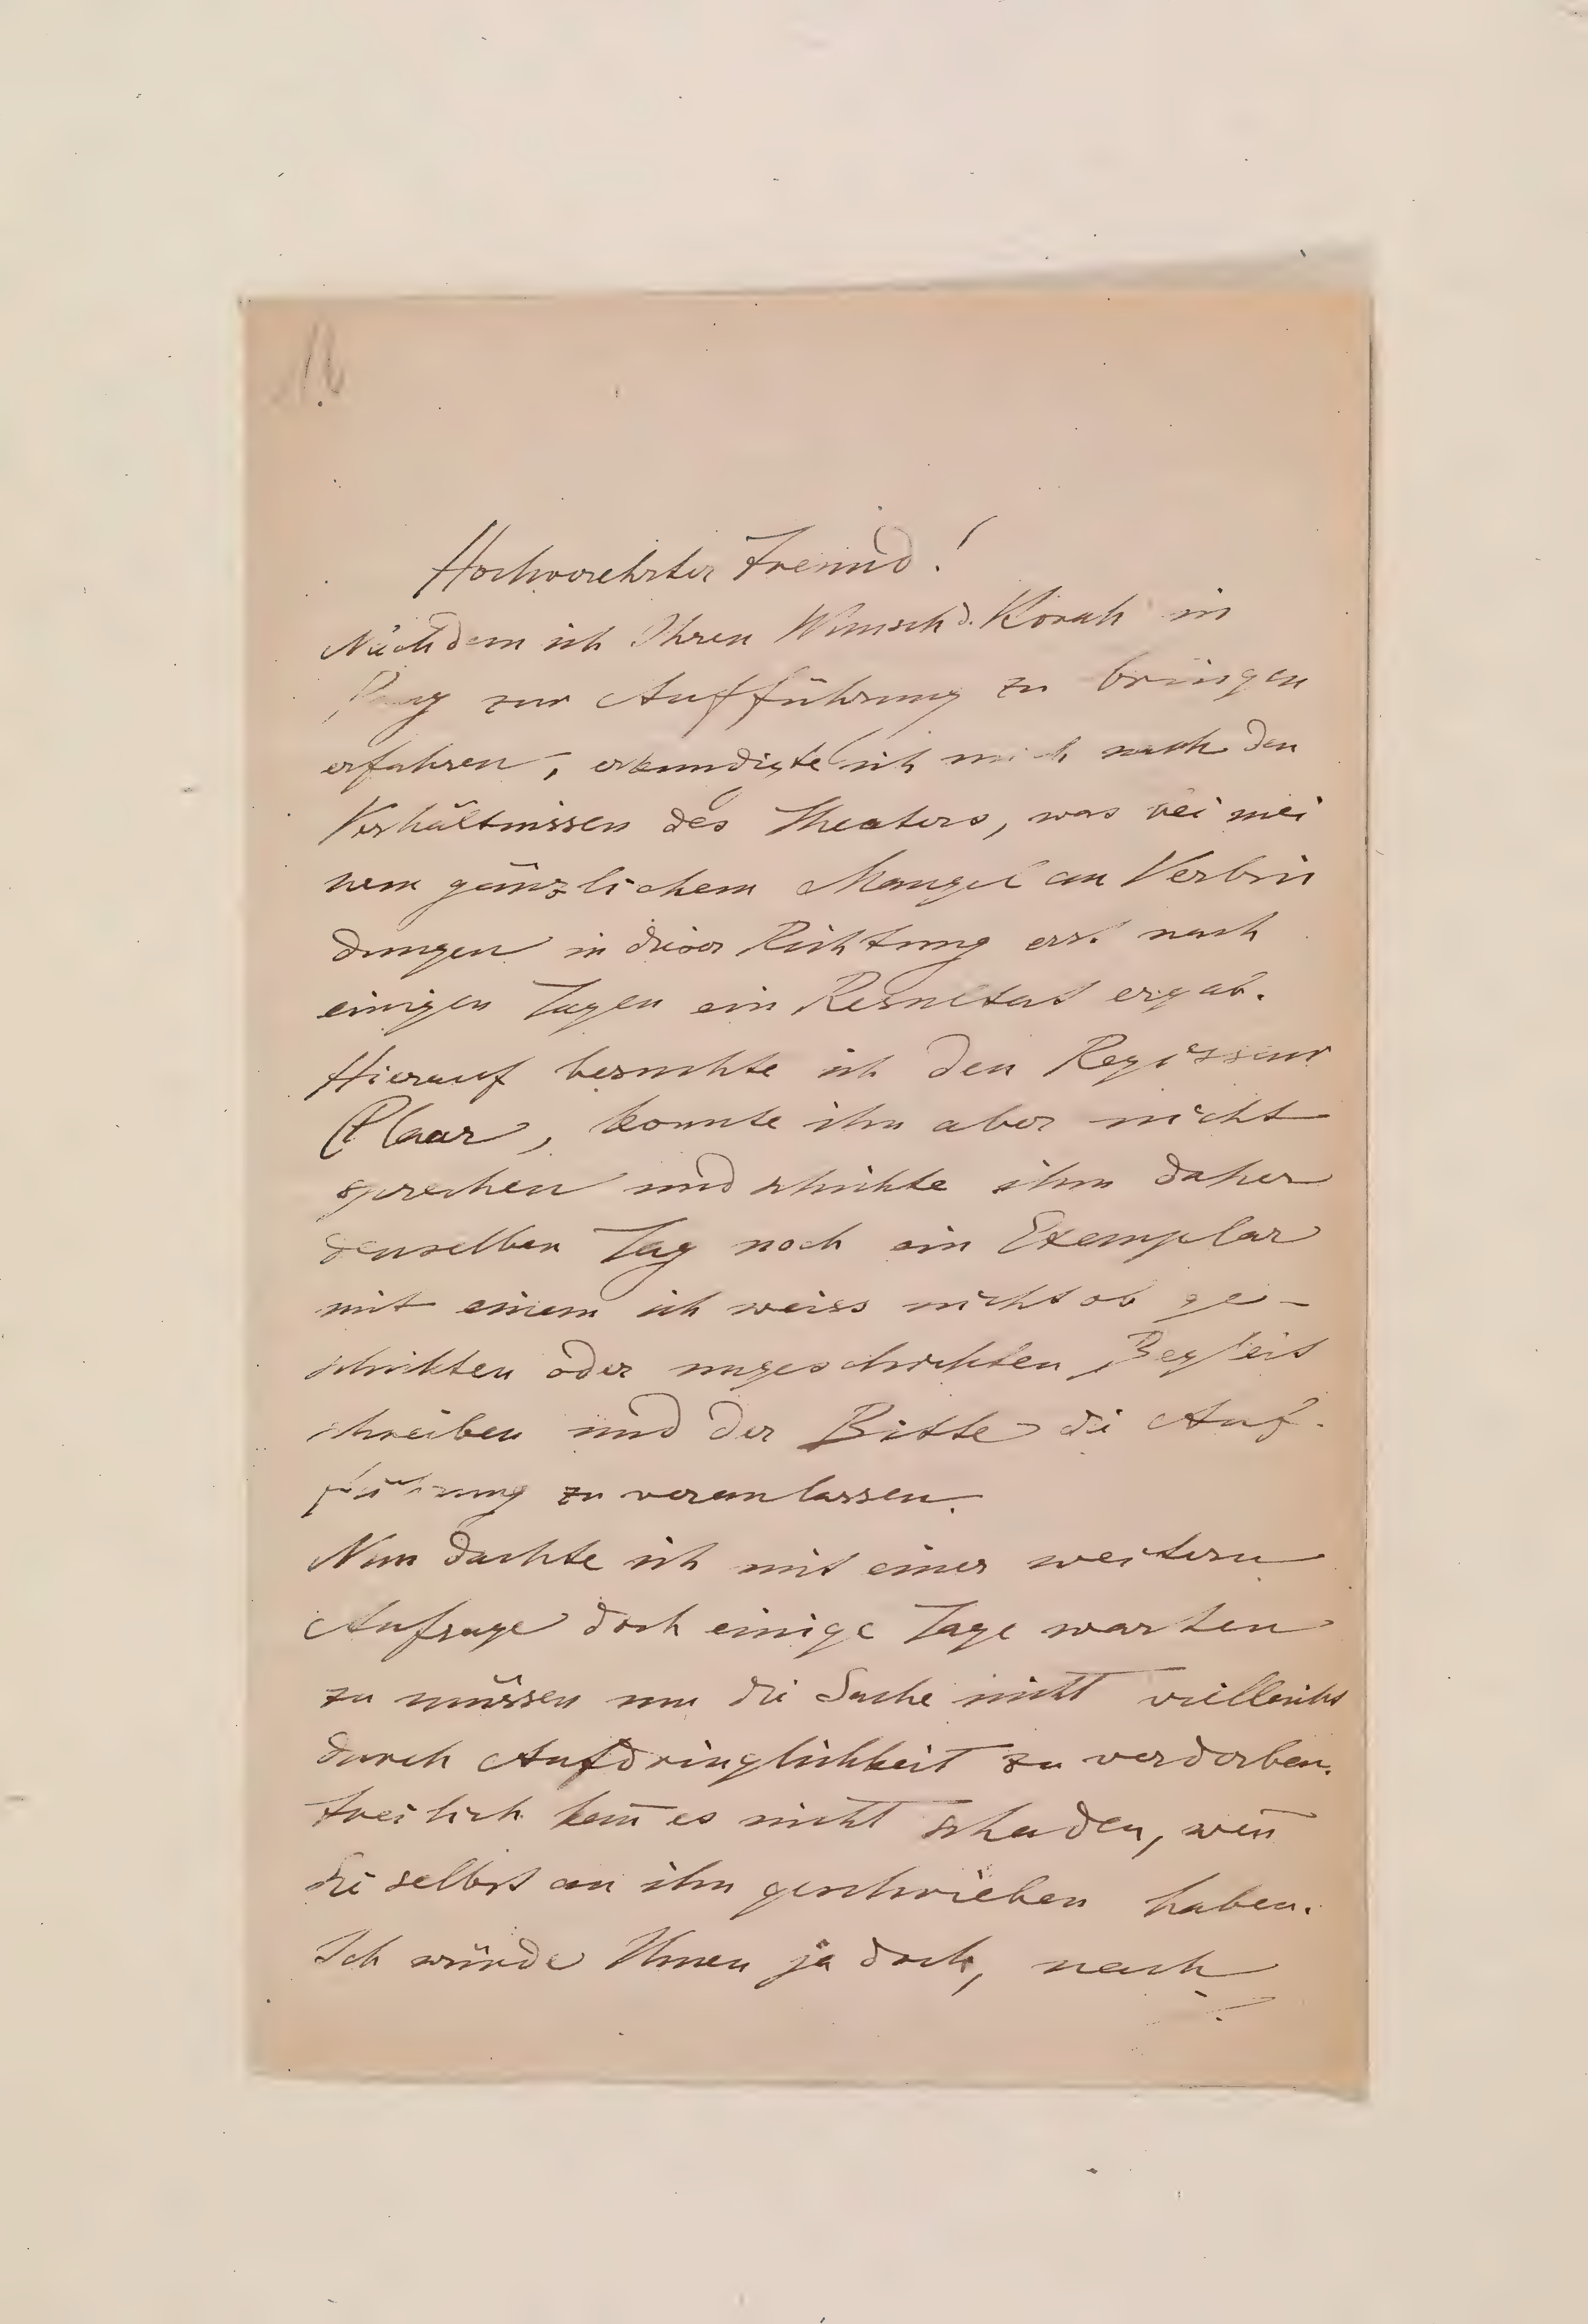 Hochverehrter Freund!
Nachdem ich Ihren Wunsch d. Korah in
Prag zur Aufführung zu bringen
erfahren, erkundigte ich mich nach den
Verhältnissen des Theaters, was bei mei
nem gänzlichem Mangel an Verbin
dungen in dieser Richtung erst nach
einigen Tagen ein Resultat ergab.
Hierauf besuchte ich den Regisseur
Klaar, konnte ihn aber nicht
sprechen und schickte ihm daher
denselben Tag noch ein Exemplar
mit einem ich weiss nicht ob ge-
schickten oder ungeschickten Begleit
schreiben und der Bitte die Auf-
führung zu veranlassen.
Nun dachte ich mit einer weitern
Anfrage doch einige Tage warten
zu müssen um die Sache nicht vielleicht
durch Aufdringlichkeit zu verderben.
Freilich kan̅ es nicht schaden, wen̅
Sie selbst an ihn geschrieben haben.
Ich würde Ihnen ja doch, nach